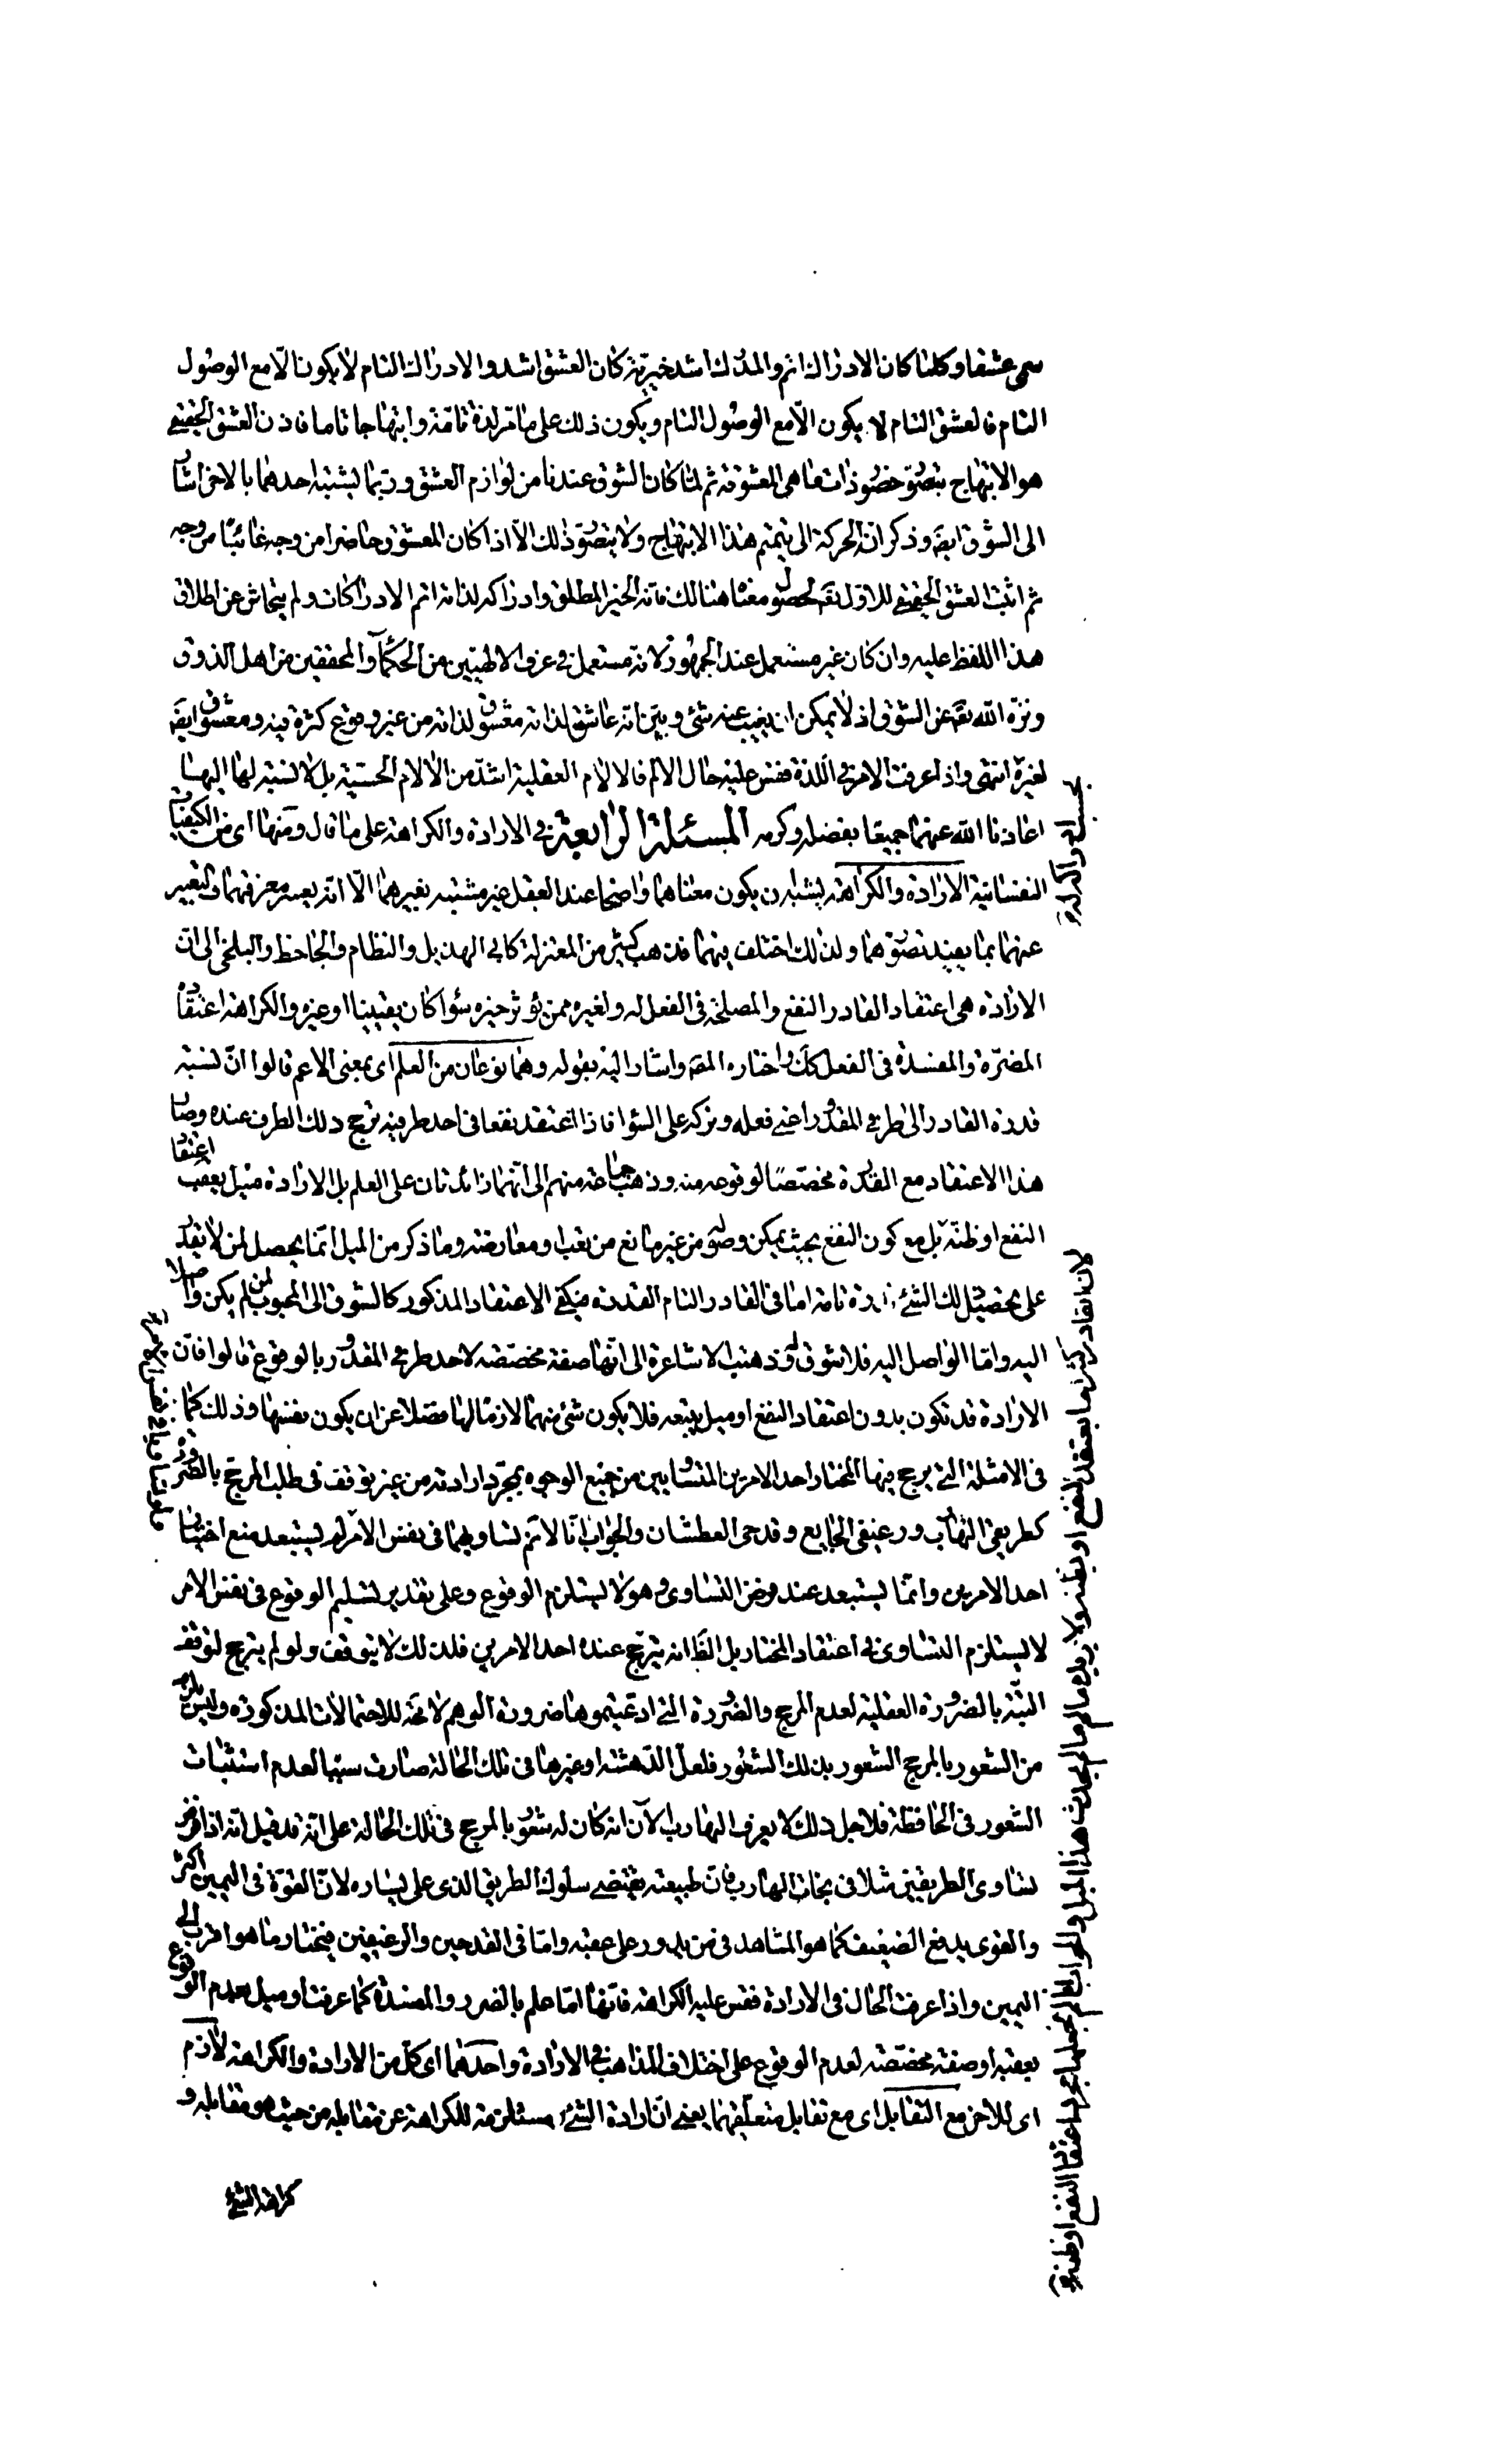 سمى عشقا وكلما كان الادراك اتم والمدرك اشد خيرية كان العشق اشد والادراك التام لا يكون الا مع الوصول
التام فالعشق التام لا يكون الا مع الوصول التام ويكون ذلك على ما مر لذة تامة وابتهاجا تاما فاذن العشق الحقيقي
هو الابتهاج بتصور حضور ذات ما هى المعشوقة ثم لما كان الشوق عندنا من لوازم العشق وربما يشتبه احدهما بالاخر اشار
الى الشوق ايضا وذكر انه الحركة الى تتميم هذا الابتهاج ولا يتصور ذلك الا اذا كان المعشوق حاضرا من وجه غائبا من وجه
ثم اثبت العشق الحقيقي للاول تعالى لحصول معناه هنالك فانه الخير المطلق وادراكه لذاته اتم الادراكات ولم يتحاش عن اطلاق
هذا اللفظ عليه وان كان غير مستعمل عند الجمهور لانه مستعمل فى عرف الالهيين من الحكماء والمحققين من اهل الذوق
ونزه الله تعالى عن الشوق اذ لا يمكن ان يغيب عنه شئ وبين انه عاشق لذاته معشوق لذاته من غير وقوع كثرة فيه ومعشوق ايضا
لغيره انتهى واذا عرفت الامر فى اللذة فقس عليه حال الالم فالالام العقلية اشد من الالام الحسية بل لا نسبة لها اليها
اعاذنا الله عنهما جميعا بفضله وكرمه المسئلة الرابعة فى الارادة والكراهة على ما قال ومنها اى من الكيفيات
النفسانية الارادة والكراهة يشبه ان يكون معناهما واضحا عند العقل غير مشتبه بغيرهما الا انه يعسر معرفتهما والتعبير
عنهما بما يفيد تصورهما ولذلك اختلف فيهما فذهب كثير من المعتزلة كابى الهذيل والنظام والجاحظ والبلخى الى ان
الارادة هى اعتقاد القادر النفع والمصلحة فى الفعل له ولغيره ممن يؤثر خيره سواء كان يقينيا او غيره والكراهة اعتقاده
المضرة والمفسدة فى الفعل كك واختاره المصـ واشار اليه بقوله وهما نوعان من العلم اى بمعنى الاعم قالوا ان نسبة
قدرة القادر الى طرفى المقدور اعنى فعله وتركه على السواء فاذا اعتقد نفعا فى احد طرفيه ترجح ذلك الطرف عنده وصار
هذا الاعتقاد مع القدرة مخصصا لوقوعه منه وذهب جماعة منهم الى انهما زائدتان على العلم بل الارادة ميل يعقب اعتقاد
النفع او ظنه بل مع كون النفع بحيث يمكن وصوله من غير مانع من تعب او معارضة وما ذكر من الميل انما يحصل لمن لا يقدر
على تحصيل ذلك الشئ قدرة تامة اما فى القادر التام القدرة فيكفى الاعتقاد المذكور كالشوق الى المحبوب لمن لم يكن واصلا
اليه واما الواصل اليه فلا شوق له وذهبت الاشاعرة الى انها صفة مخصصة لاحد طرفى المقدور بالوقوع قالوا فان
الارادة قد تكون بدون اعتقاد النفع او ميل يتبعه فلا يكون شئ منهما لازما لها فضلا عن ان يكون نفسها وذلك كما
فى الامثلة التى يرجح فيها المختار احد الامرين المتساويين من جميع الوجوه بمجرد ارادته من غير توقف فى طلب المرجح بالضرورة
كطريقى الهارب ورغيفى الجايع وقدحى العطشان والجواب انا لا نم تساويهما فى نفس الامر ولم يستبعد منع اختيار
احد الامرين وانما يستبعد عند فرض التساوى وهو لا يستلزم الوقوع وعلى تقدير تسليم الوقوع فى نفس الامر
لا يستلزم التساوى فى اعتقاد المختار بل الظ انه يترجح عنده احد الامرين فلذلك لا يتوقف ولو لم يترجح لتوقف
البتة بالضرورة العقلية لعدم المرجح والضرورة التى ادعيتموها ضرورة الوهم لا محة للاحتمالات المذكورة وليس يلزم
من الشعور بالمرجح الشعور بذلك الشعور فلعل الدهشة او غيرها فى تلك الحالة صارت سببا لعدم استثبات
الشعور فى الحافظة فلاجل ذلك لا يعرف الهارب الآن انه كان له شعور بالمرجح فى تلك الحالة على انه قد قيل انه اذا فرض
تساوى الطريقين مثلا فى نجات الهارب فان طبيعته يقتضى سلوك الطريق الذى على يساره لان القوة فى اليمين اكثر
والقوى يدفع الضعيف كما هو المشاهد فى من يدور على عقبه واما فى القدحين والرغيفين فيختار ما هو اقرب الى
اليمين واذا عرفت الحال فى الارادة فقس عليه الكراهة فانها اما علم بالضرر والمفسدة كما عرفت او ميل لعدم الوقوع
يعقبه او صفة مخصصة لعدم الوقوع على اختلاف المذاهب فى الارادة واحدهما اى كل من الارادة والكراهة لازم
اى للاخر مع التقابل اى مع تقابل متعلقهما يعنى ان ارادة الشئ مستلزمة للكراهة عن مقابله من حيث هو مقابله و
كراهة الشئ
لان القادر كثيرا ما يعتقد النفع او يظنه ولا يريده ما لم يحدث هذا الميل والجواب انا لم نجعلها مجرد اعتقاد النفع او ظنه